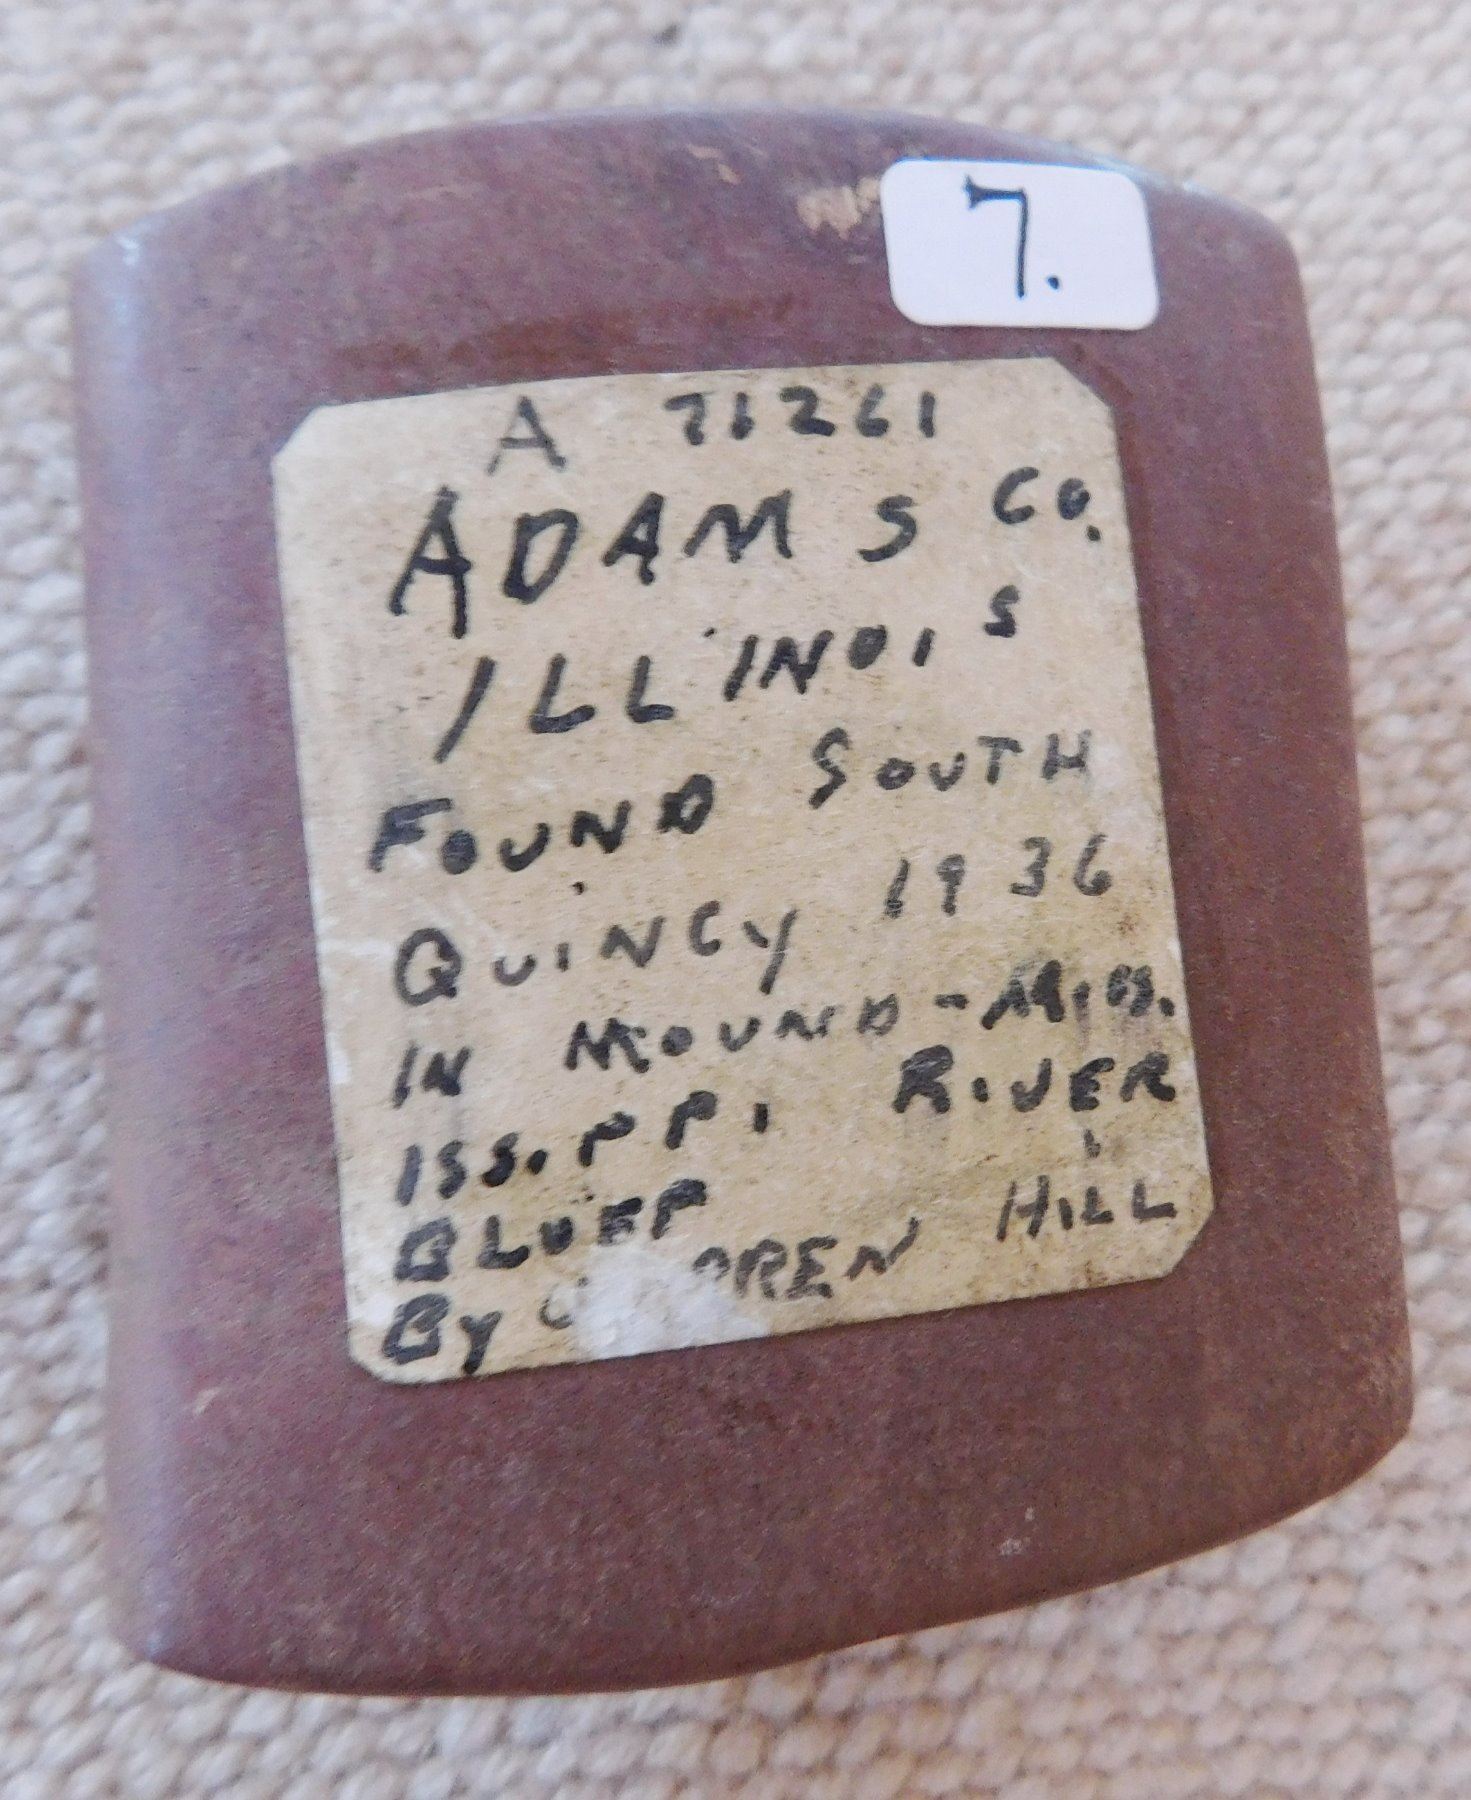 7.
A 71261
ADAMS CO.
ILLINOIS
FOUND SOUTH
QUINCY 1936
IN MOUND - MISS.
ISSIPPI RIVER
BLUFF
By HILL